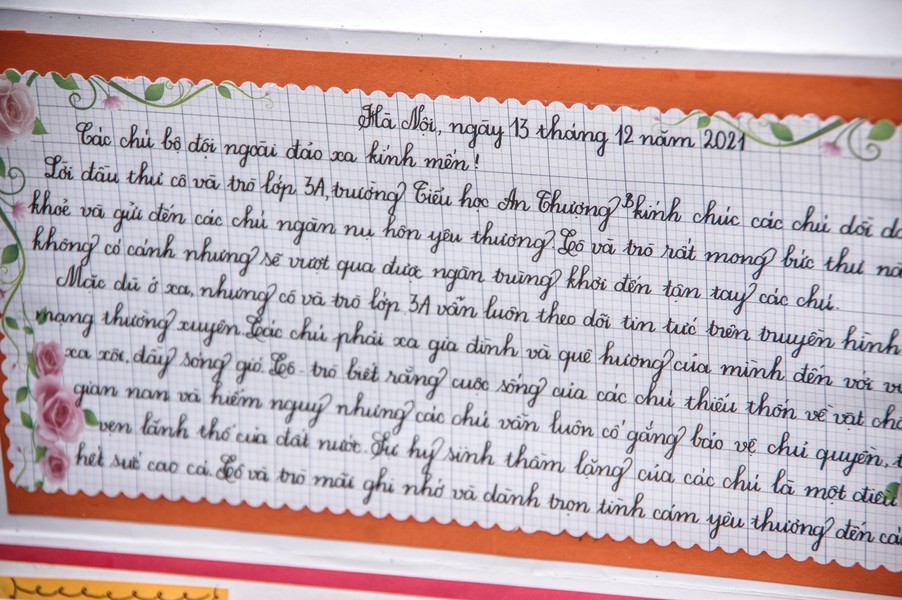 Hà Nội, ngày 13 tháng 12 năm 2021
Các chú bộ đội ngoài đảo xa kính mến!
Lời đầu thư cô và trò lớp 3A, trường Tiểu học An Thượng B kính chúc các chú dồi
khoẻ và gửi đến các chú ngàn nụ hôn yêu thương. Cô và trò rất mong bức thư
không có cánh nhưng sẽ vượt qua được ngàn trùng khơi đến tận tay các chú.
Mặc dù ở xa, nhưng cô và trò lớp 3A vẫn luôn theo dõi tin tức trên truyền hình
mạng thường xuyên. Các chú phải xa gia đình và quê hương của mình đến với
xa xôi, đầy sóng gió. Cô - trò biết rằng cuộc sống của các chú thiếu thốn về vật
gian nan và hiểm nguy nhưng các chú vẫn luôn cố gắng bảo vệ chủ quyền,
vẹn lãnh thổ của đất nước. Sự hy sinh thầm lặng của các chú là một điều
hết sức cao cả. Cô và trò mãi ghi nhớ và dành trọn tình cảm yêu thương đến